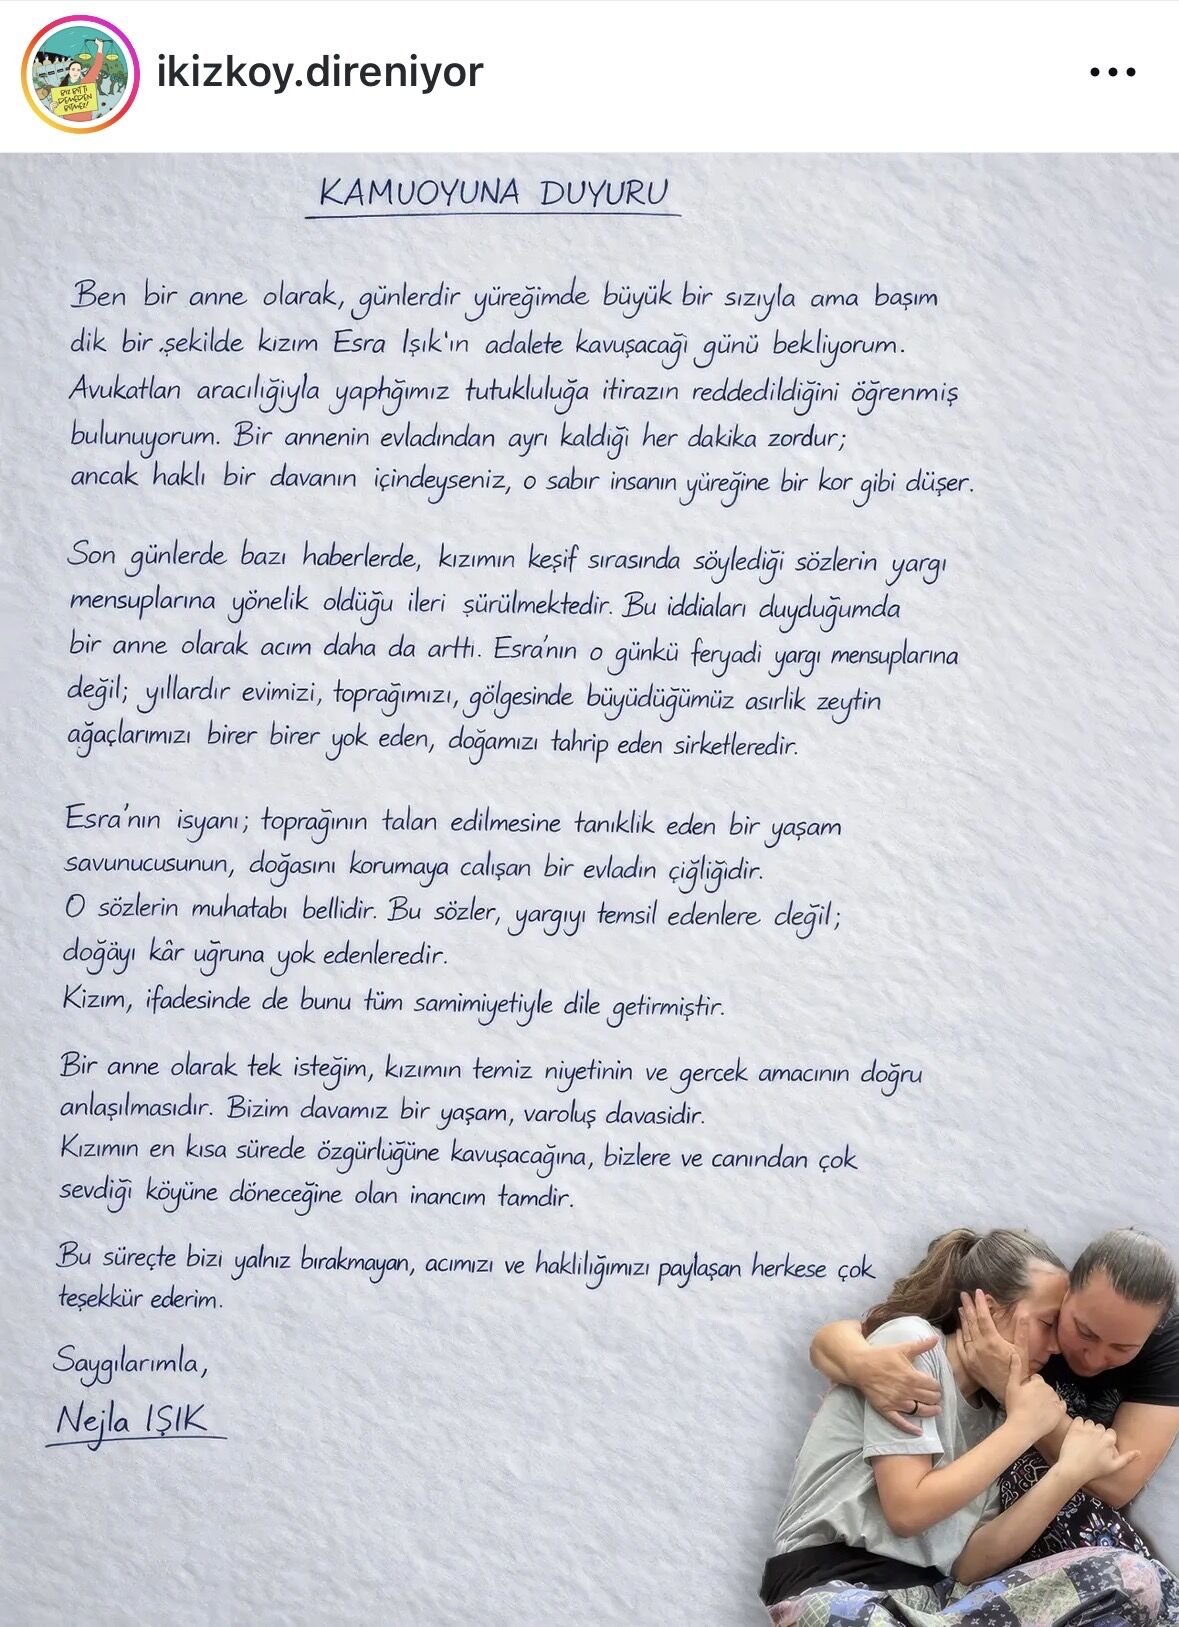 ikizkoy.direniyor
BİZ BİTTİ
DEMEDEN
BİTMEZ!
KAMUOYUNA DUYURU
Ben bir anne olarak, günlerdir yüreğimde büyük bir sızıyla ama başım
dik bir şekilde kızım Esra Işık'ın adalete kavuşacaği günü bekliyorum.
Avukatlan aracılığiyla yaphğımız tutukluluğa itirazın reddedildiğini öğrenmiş
bulunuyorum. Bir annenin evladından ayrı kaldiği her dakika zordur;
ancak haklı bir davanın içindeyseniz, o sabır insanın yüreğine bir kor gibi düşer.
Son günlerde bazı haberlerde, kızımın keşif sırasında söylediği sözlerin yargı
mensuplarına yönelik oldüğu ileri sürülmektedir. Bu iddiaları duyduğumda
bir anne olarak acım daha da arttı. Esra'nın o günkü feryadi yargı mensuplarına
değil; yıllardır evimizi, toprağımızı, gölgesinde büyüdüğümüz asırlik zeytin
ağaçlarımızı birer birer yok eden, doğamızı tahrip eden sirketleredir.
Esra'nın isyanı; toprağının talan edilmesine tanıklik eden bir yaşam
savunucusunun, doğasını korumaya calışan bir evladin çiğliğidir.
O sözlerin muhatabı bellidir. Bu sözler, yargıyı temsil edenlere değil;
doğäyı kâr uğruna yok edenleredir.
Kizım, ifadesinde de bunu tüm samimiyetiyle dile getirmiştir.
Bir anne olarak tek isteğim, kızımın temiz niyetinin ve gercek amacının doğru
anlaşılmasıdır. Bizim davamız bir yaşam, varoluş davasidir.
Kızımın en kısa sürede özgürlüğüne kavuşacağına, bizlere ve canından çok
sevdiği köyüne döneceğine olan inancım tamdir.
Bu süreçte bizi yalnız bırakmayan, acımızı ve haklılığımızı paylaşan herkese çok
teşekkür ederim.
Saygılarımla,
Nejla IŞIK